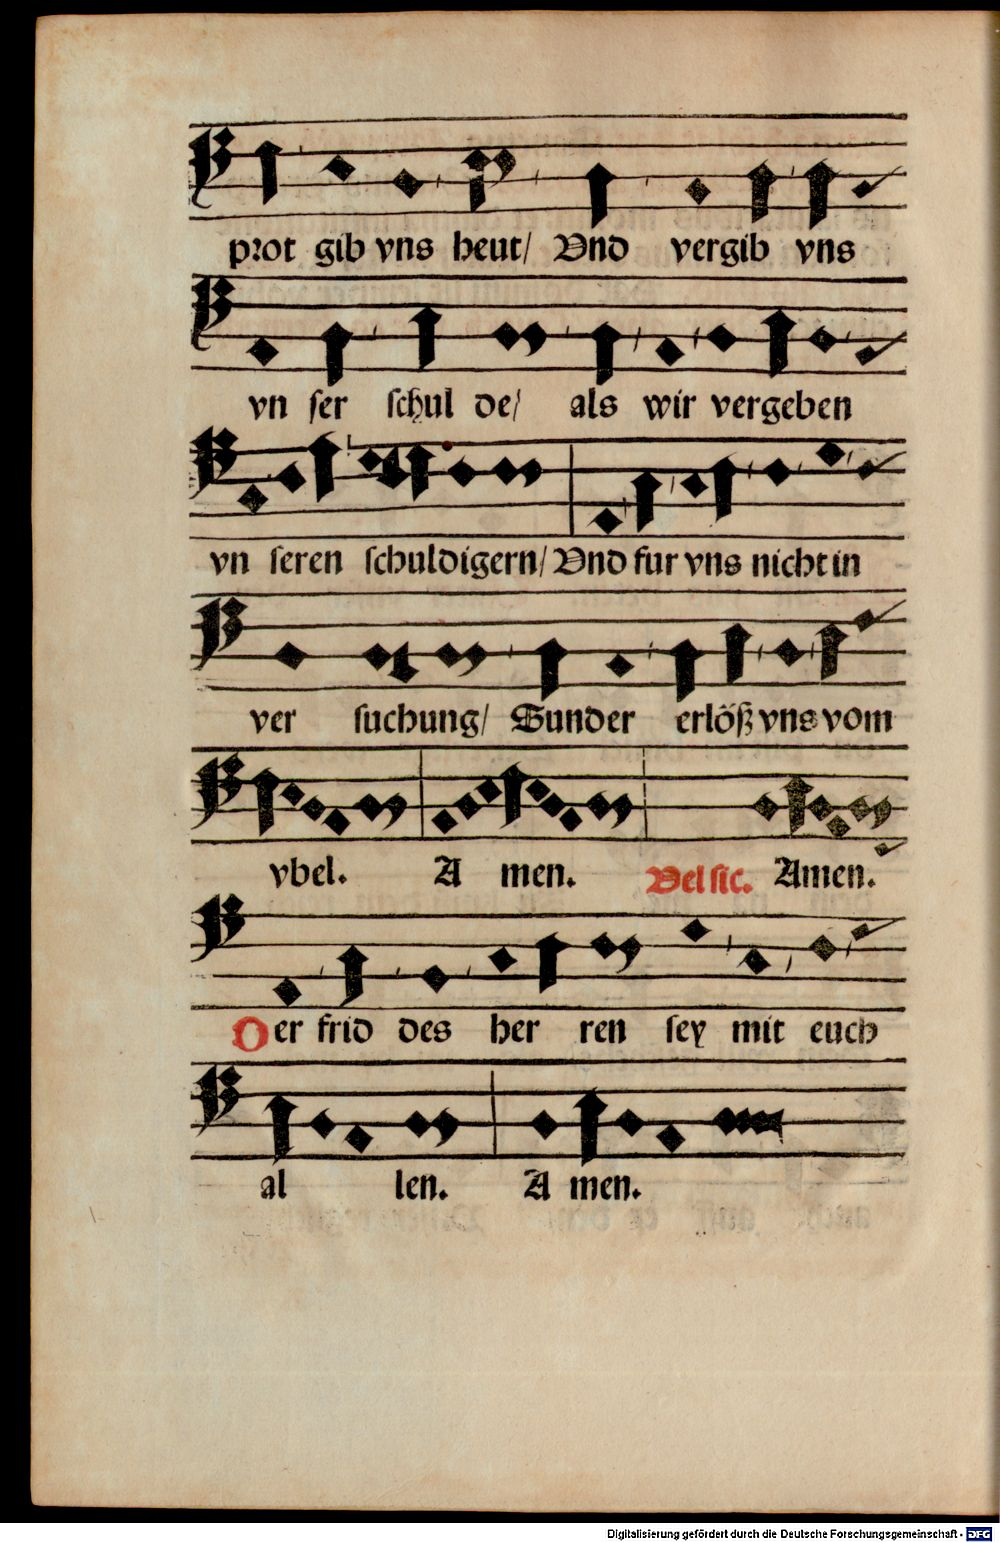 prot gib vns heut/ Vnd vergib vns
vn ser schul de/ als wir vergeben
vn seren schuldigern/ Vnd fur vns nicht in
ver suchung/ Sunder erlöß vns vom
vbel. A men. Vel sic. Amen.
Der frid des her ren sey mit euch
al len. A men.
Digitalisierung gefördert durch die Deutsche Forschungsgemeinschaft - DFG